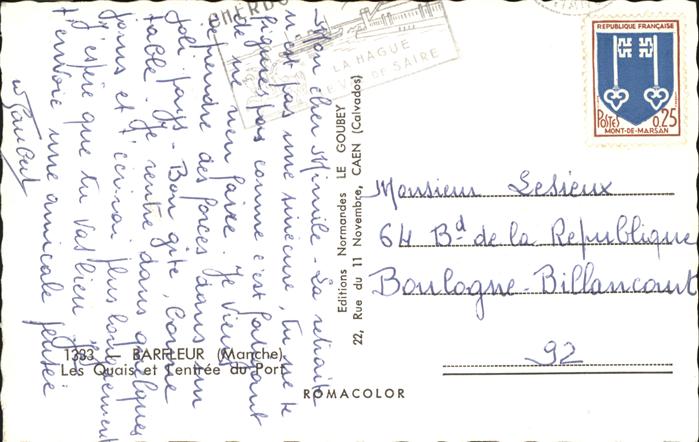 Mon cher Mimile - La retraite
n'est pas une sinécure, tu ne te
figures pas comme c'est fatigant
de ne rien faire. Je viens
reprendre des forces dans un
joli pays - Bon gîte, bonne
table. Je rentre dans quelques
jours et t'écrirai plus longuement
J'espère que tu vas bien je
t'envoie une amicale pensée
CHERBO
LA HAGUE
VAL DE SAIRE
REPUBLIQUE FRANÇAISE
POSTES 0,25
MONT-DE-MARSAN
Editions Normandes LE GOUBEY
22, Rue du 11 Novembre, CAEN (Calvados)
Monsieur Lesieux
64 Bd de la Republique
Boulogne-Billancourt
92
1333 - BARFLEUR (Manche)
Les Quais et l'entrée du Port
ROMACOLOR